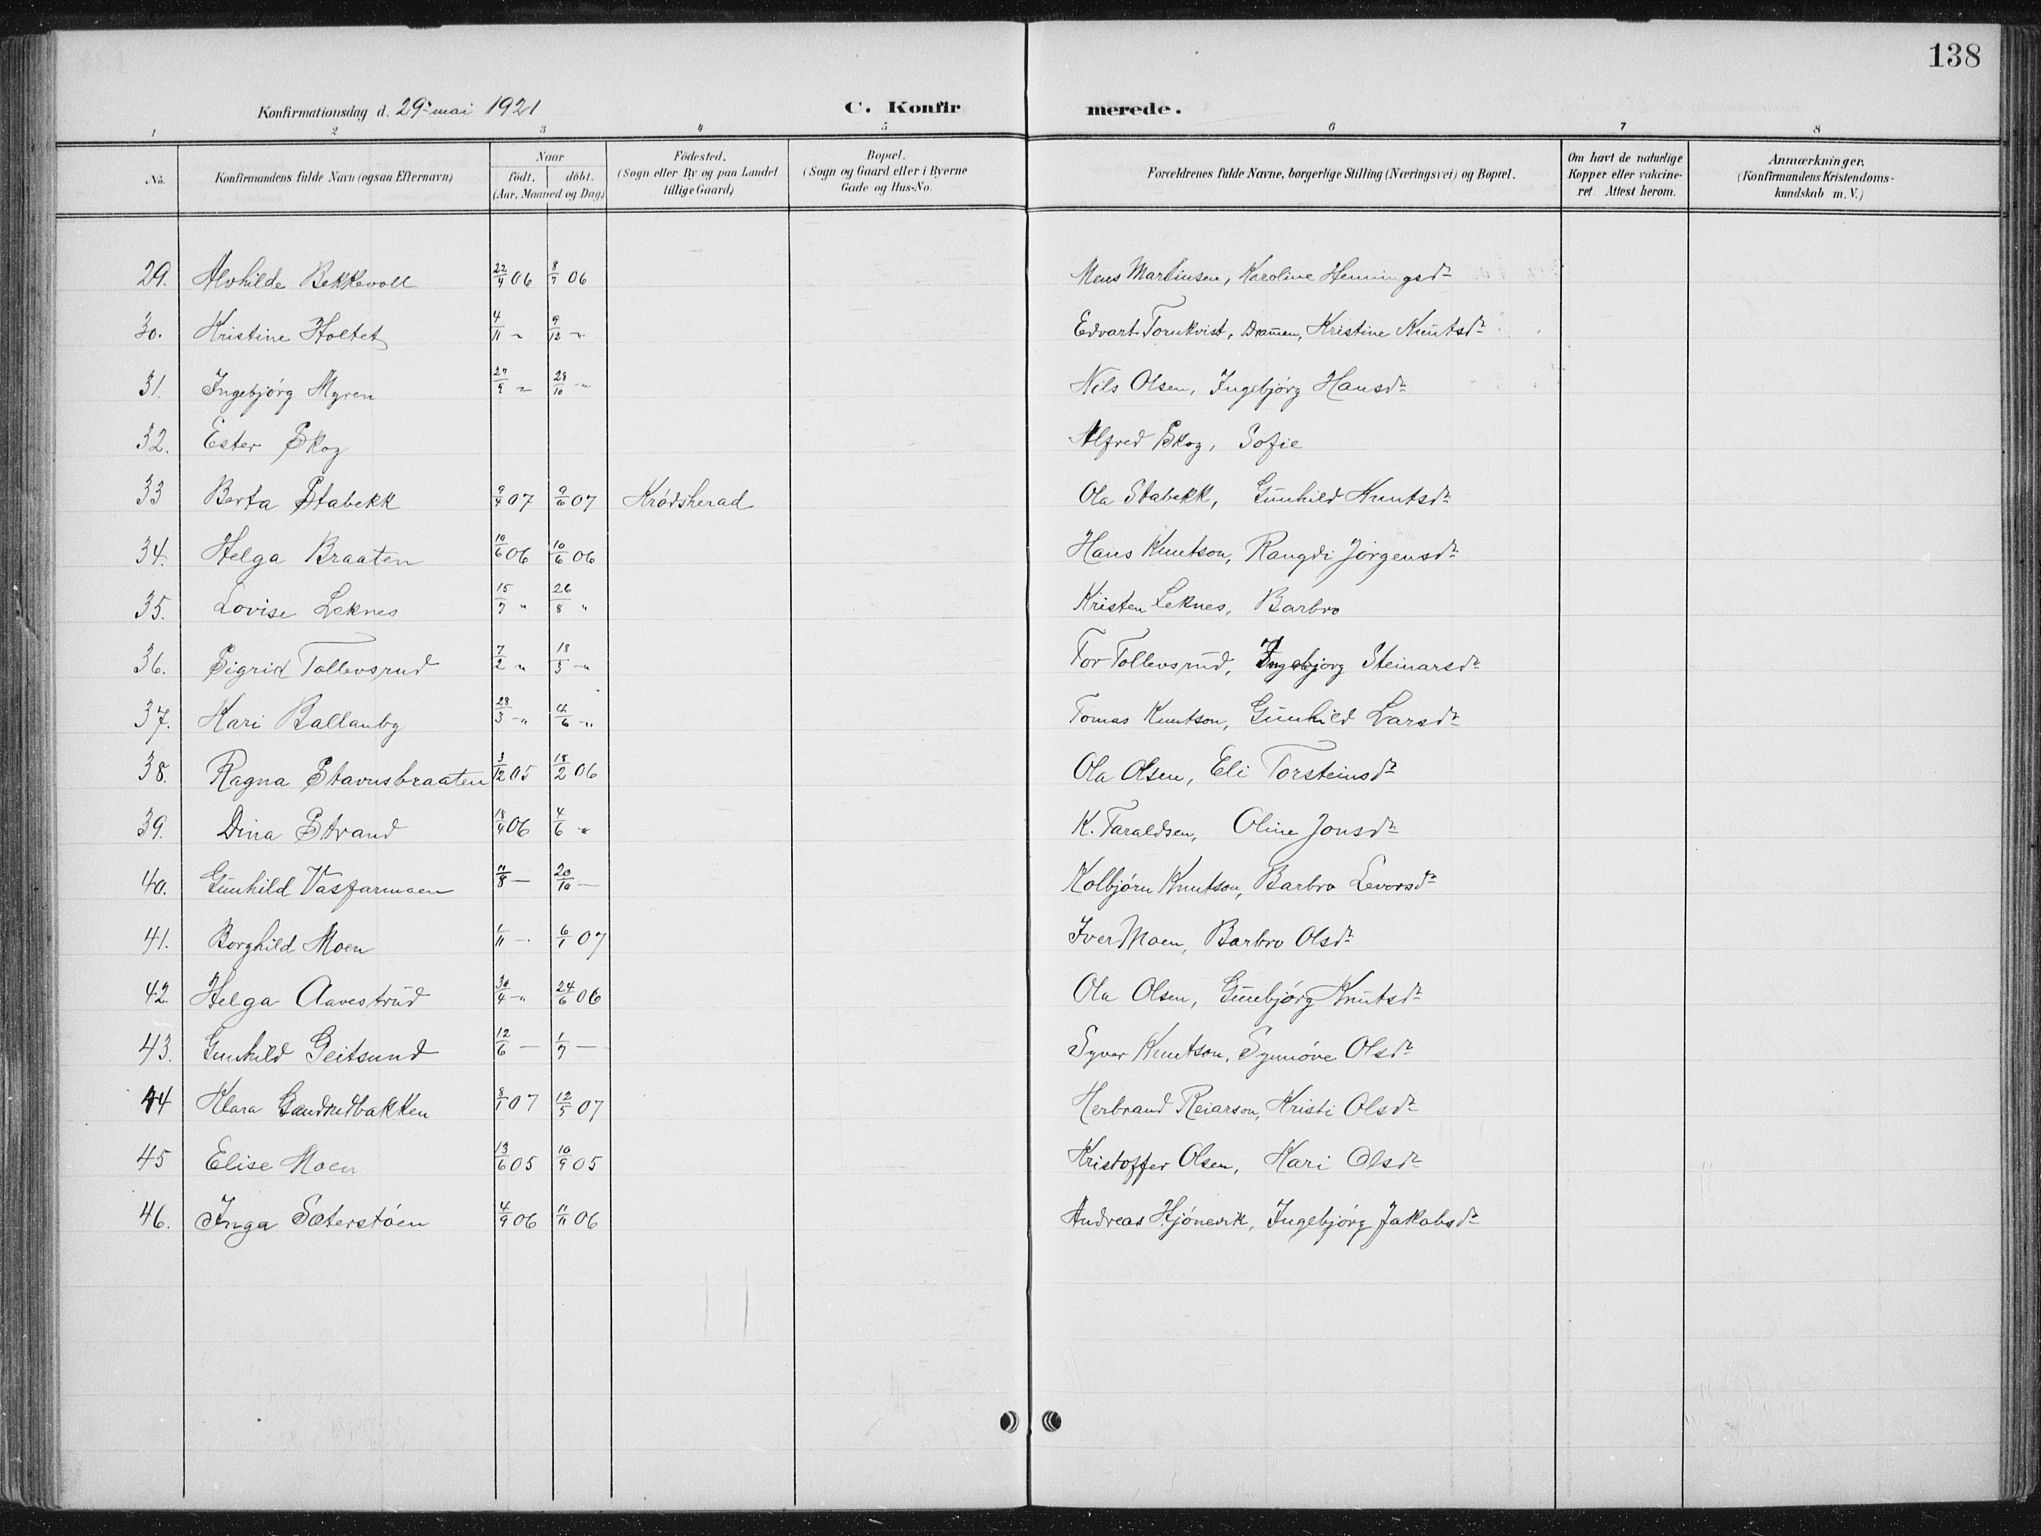 138
Konfirmationsdag d. 29 mai 1921 C. Konfirmerede.
1 2 3 4 5 6 7 8
No. Konfirmandens fulde Navn (ogsaa Efternavn) Naar født. døbt. (Aar, Maaned og Dag) Födested. (Sogn eller By og paa Landet tillige Gaard) Bopæl. (Sogn og Gaard eller i Byerne Gade og Hus-No. Forældrenes fulde Navne, borgerlige Stilling (Næringsvei) og Bopæl. Om havt de naturlige Kopper eller vakcineret. Attest herom. Anmærkninger. (Konfirmandens Kristendomskundskab m. V.)
29. Alvhilde Bekkevoll 22/4 06 8/7 06 Mons Martinsen, Karoline Henningsdr
30. Kristine Holtet 4/11 " 9/12 " Edvart Tornkvist, Dramen, Kristine Knutsdr
31. Ingebjörg Myren 27/9 " 28/10 " Nils Olsen, Ingebjörg Hansdr
32. Ester Skog Alfred Skog, Sofie
33 Berta Stabekk 9/4 07 9/6 07 Krødsherad Ola Stabekk, Gunhild Knutsdr
34. Helga Braaten 10/6 06 10/6 06 Hans Knutson, Rangdi Jörgensdr
35. Lovise Leknes 15/7 " 26/8 " Kristen Leknes, Barbro
36. Sigrid Tollevsrud 7/2 " 18/3 " Tor Tollevsrud, Ingebjorg Steinarsdr
37. Kari Ballanby 28/3 " 4/6 " Tomas Knutson, Gunhild Larsdr
38. Ragna Stavnsbraaten 3/12 05 18/2 06 Ola Olsen, Eli Torsteinsdr
39. Dina Strand 18/4 06 4/6 " K. Taraldsen, Oline Jonsdr
40. Gunhild Vasfarmoen 11/8 — 20/10 — Kolbjørn Knutson, Barbro Levorsdr
41. Borghild Moen 1/11 — 6/1 07 Iver Moen, Barbro Olsdr
42. Helga Aavestrud 30/4 " 24/6 06 Ola Olsen, Gunbjörg Knutsdr
43. Gunhild Geitsund 12/6 — 1/7 — Syver Knutson, Synnöve Olsdr
44 Klara Gandrudbakken 8/1 07 12/5 07 Herbrand Reiarson, Kristi Olsdr
45 Elise Moen 13/6 05 10/9 05 Kristoffer Olsen, Kari Olsdr
46. Inga Sæterstøen 4/9 06 11/11 06 Andreas Hjönevik, Ingebjörg Jakobsdr